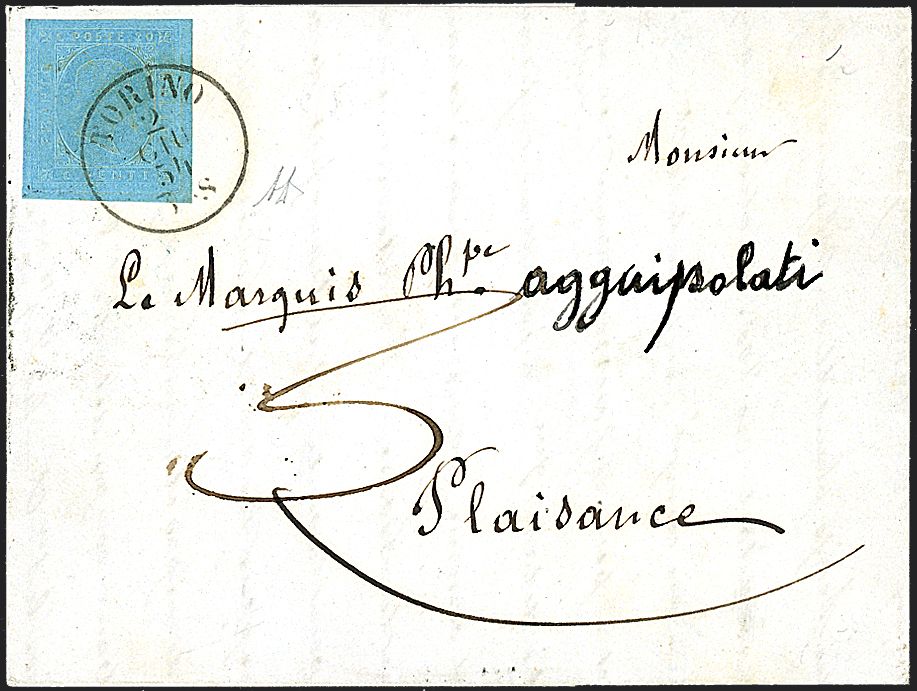 C POSTE 20
CENTI
TORINO
Monsieur
Le Marquis Ph.pe agguipolati
3
Plaisance